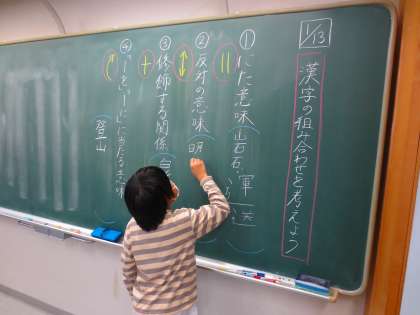 1/13
漢字の組み合わせを考えよう
①にた意味
岩石
②反対の意味
明
③修飾する関係
④「ーを」「ーに」に当たる意味
登山